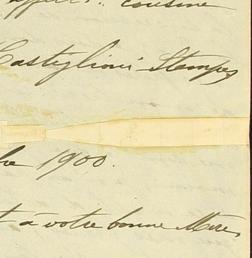 cousine
Castiglioni Stampes
bre 1900.
t à votre bonne Mère,